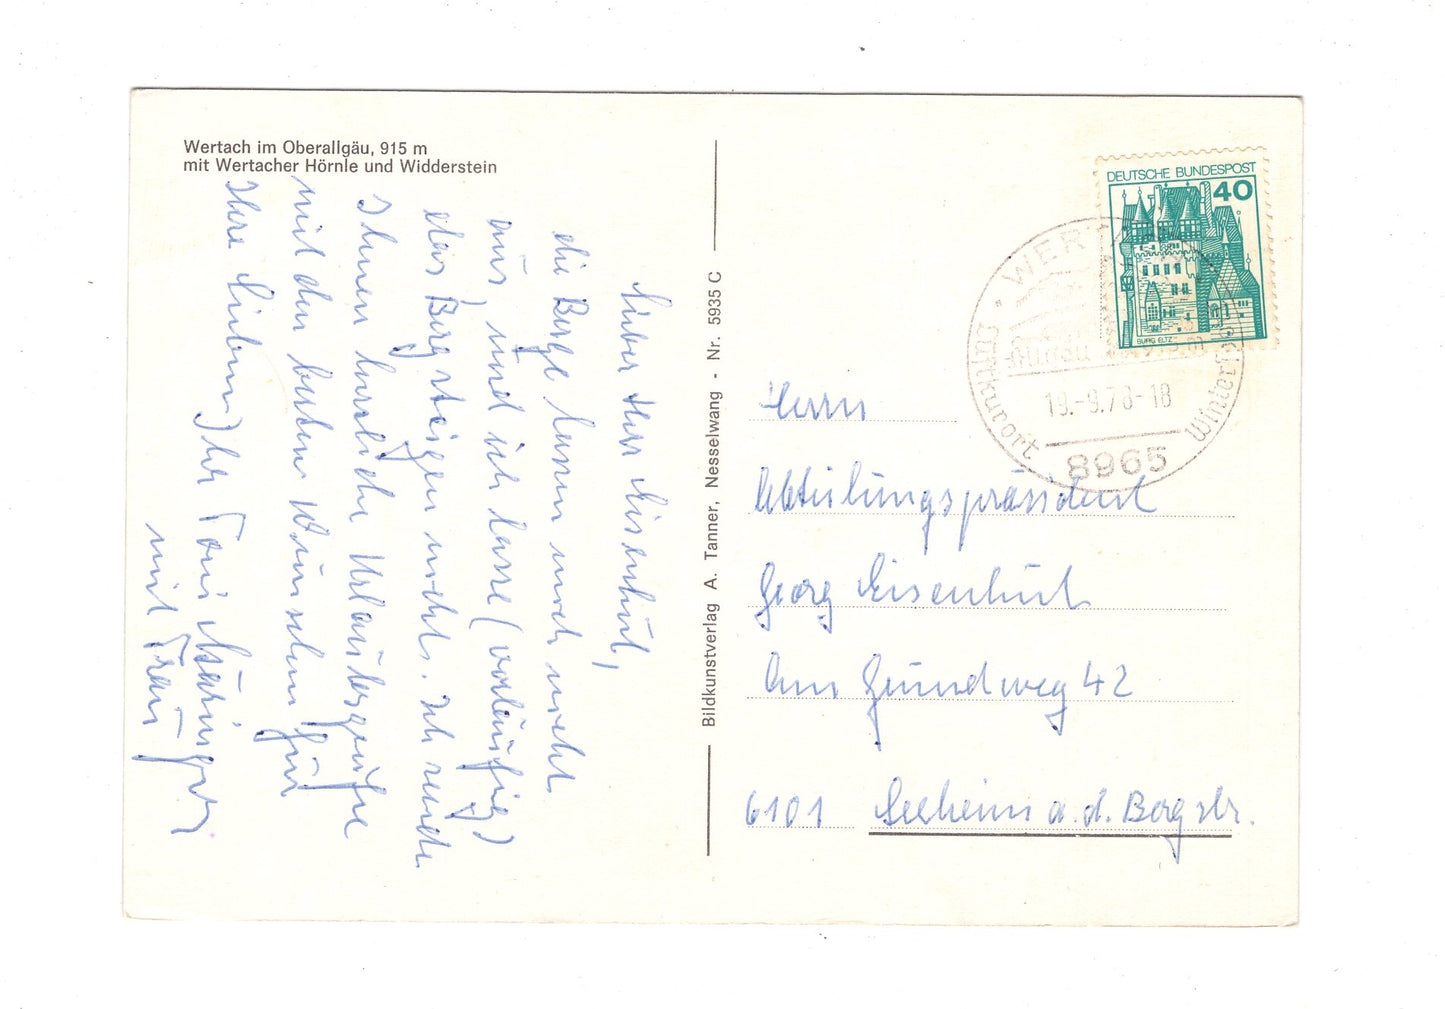 Wertach im Oberallgäu, 915 m
mit Wertacher Hörnle und Widderstein
Lieber Herr Eisenhut,
die Berge lassen mich nicht
aus, und ich lasse (vorläufig)
das Bergsteigen nicht. Ich sende
Ihnen herzliche Urlaubsgrüße
mit den besten Wünschen für
Ihre Lieben, Ihr Toni
mit Frau
Bildkunstverlag A. Tanner, Nesselwang - Nr. 5935 C
DEUTSCHE BUNDESPOST
40
BURG ELTZ
WER
Luftkurort
Allgäu
18.-9.78-18
8965
Herrn
Abteilungspräsident
Georg Eisenhut
Am Grundweg 42
6101 Seeheim a. d. Bergstr.